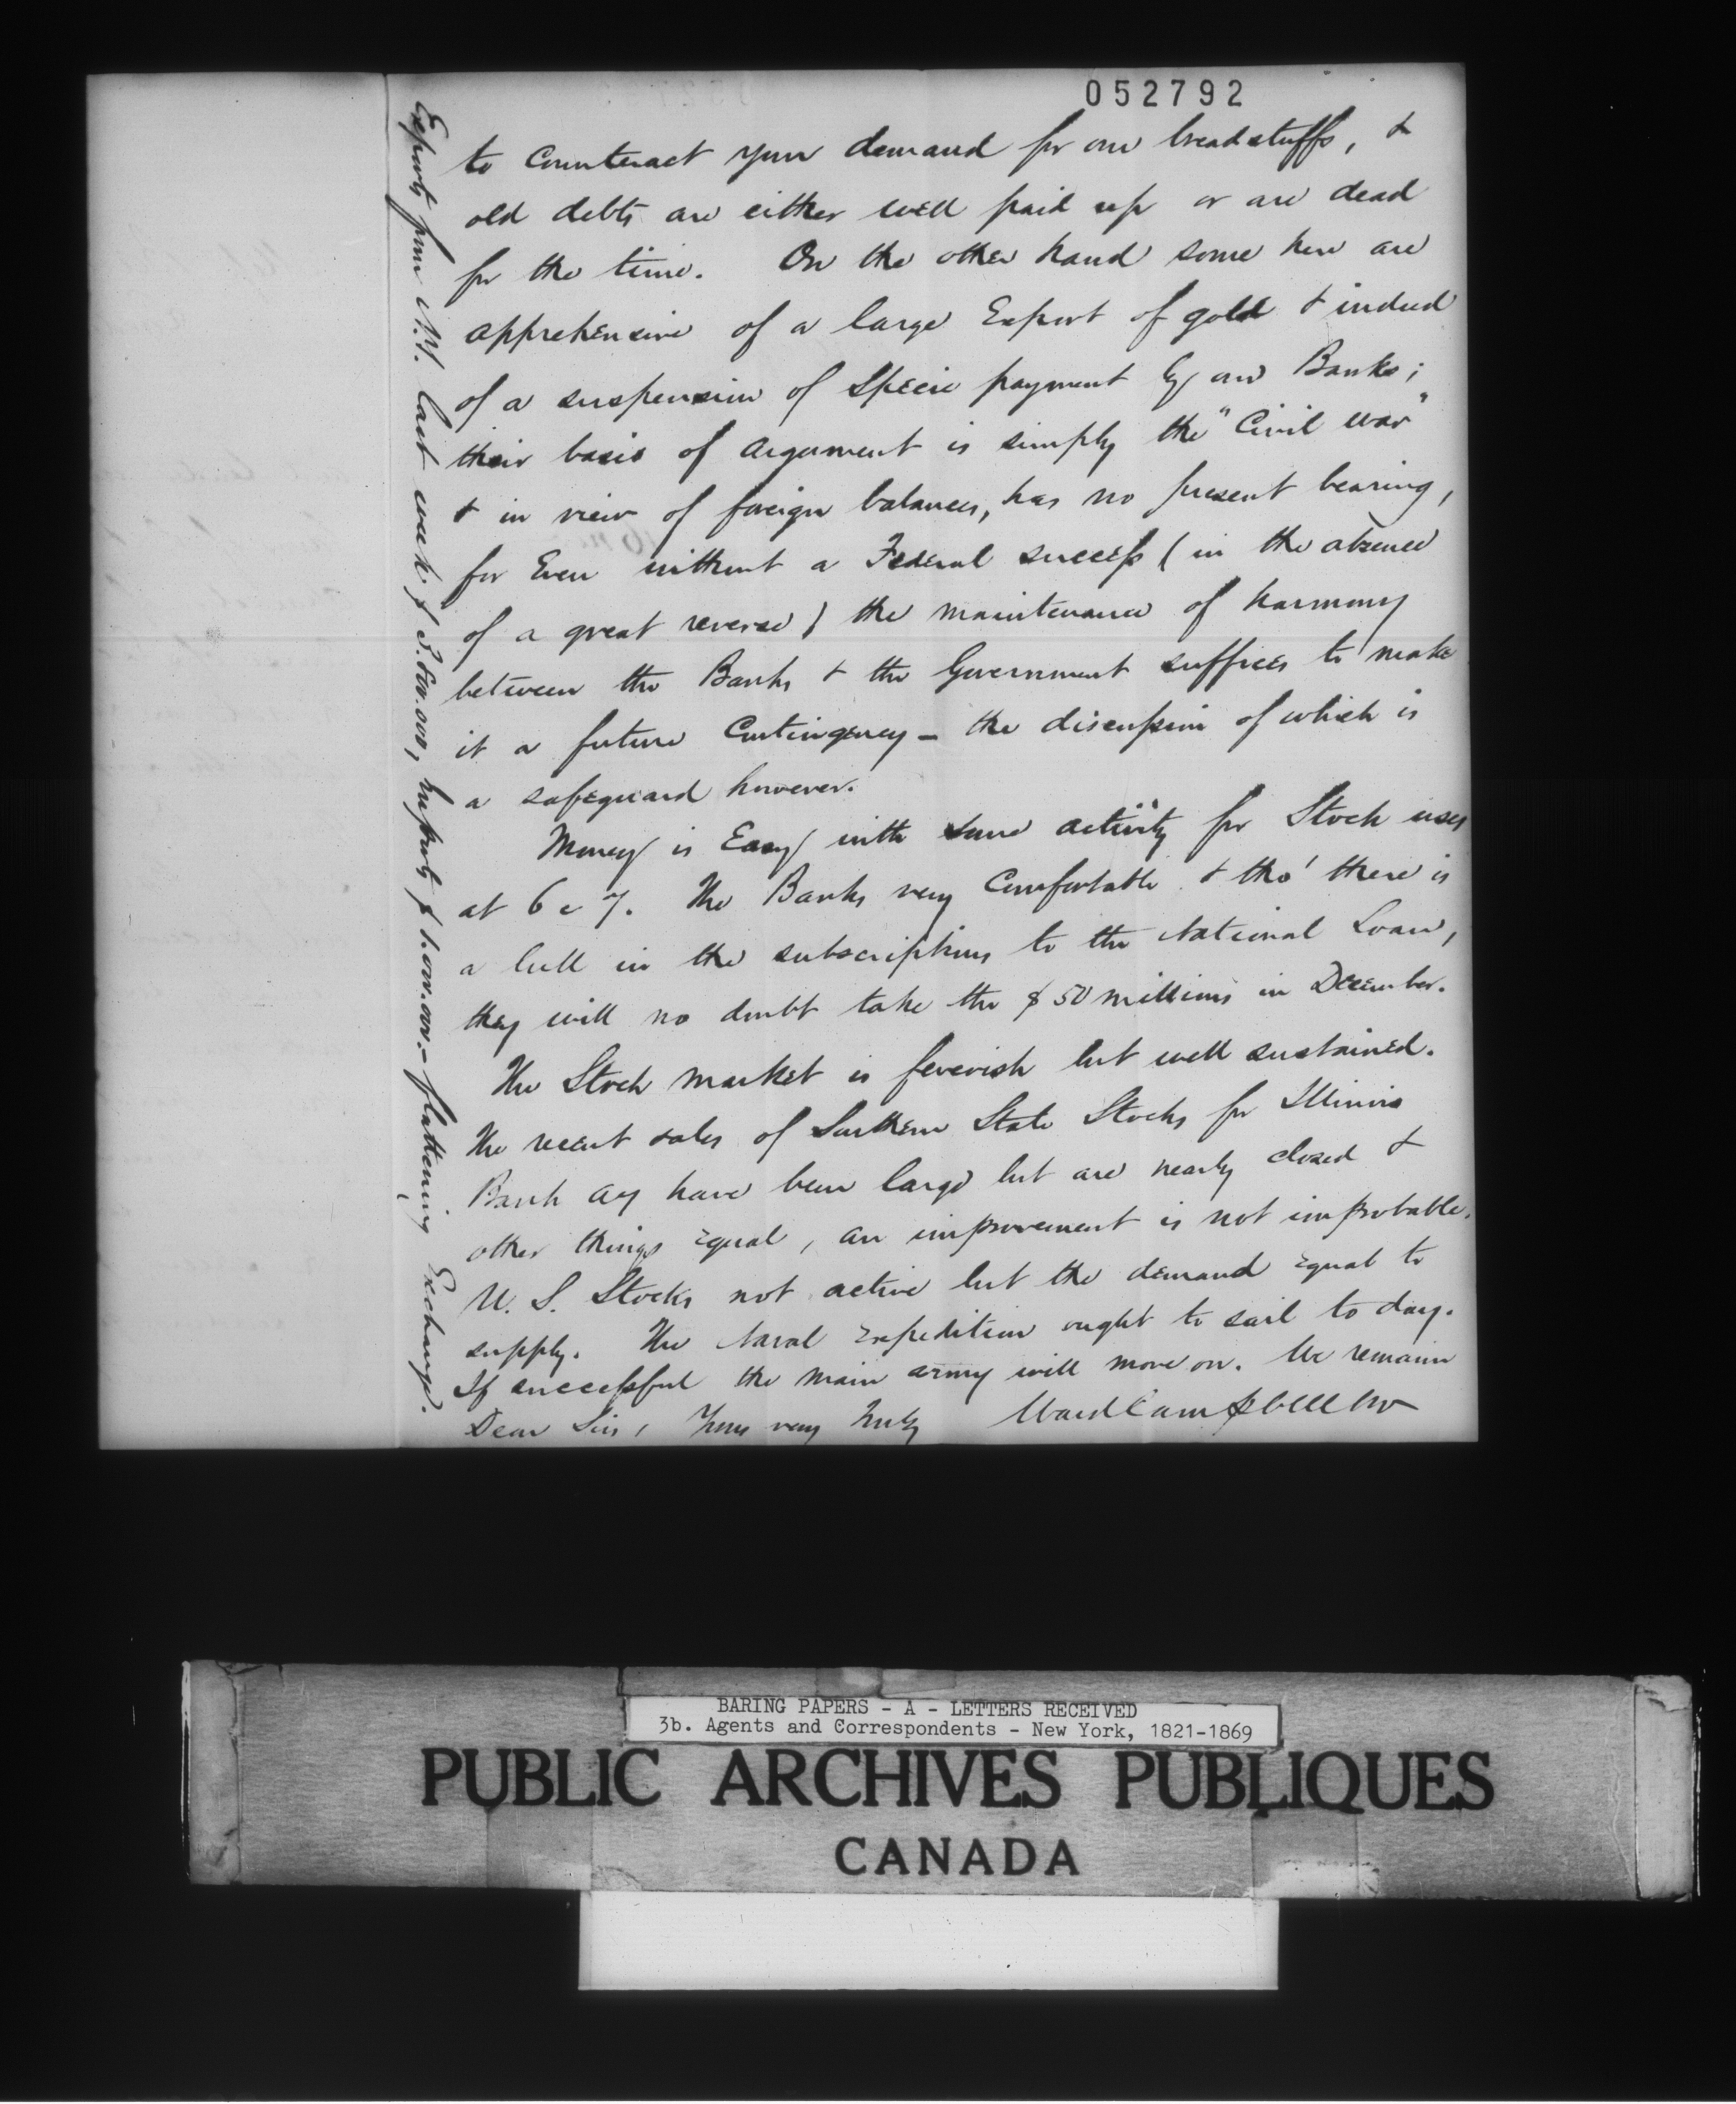 052792
to Counteract your demand for our breadstuffs, &
old debts are either well paid up or are dead
for the time. On the other hand some here are
apprehensive of a large Export of gold & indeed
of a suspension of Specie payment by our Banks;
their basis of argument is simply the "Civil war"
& in view of foreign balances, has no present bearing,
for Even without a Federal success (in the absence
of a great reverse) the maintenance of harmony
between the Banks & the Government suffices to make
it a future Contingency - the discussion of which is
a safeguard however.
Money is Easy with some activity for Stock uses
at 6 a 7. The Banks very Comfortable & tho' there is
a lull in the subscriptions to the National Loan,
they will no doubt take the $50 millions in December.
The Stock market is feverish but well sustained.
The recent sales of Southern State Stocks for Illinois
Bank a/c have been large but are nearly closed &
other things Equal, an improvement is not improbable.
U. S. Stocks not active but the demand Equal to
supply. The Naval Expedition ought to sail to day.
If successful the main army will move on. We remain
Dear Sirs, Yours very truly Ward Campbell & Co
Exports from N.Y. last week $3.600.000, Imports $1.000.000.- flattening Exchange.
BARING PAPERS - A - LETTERS RECEIVED
3b. Agents and Correspondents - New York, 1821-1869
PUBLIC ARCHIVES PUBLIQUES
CANADA